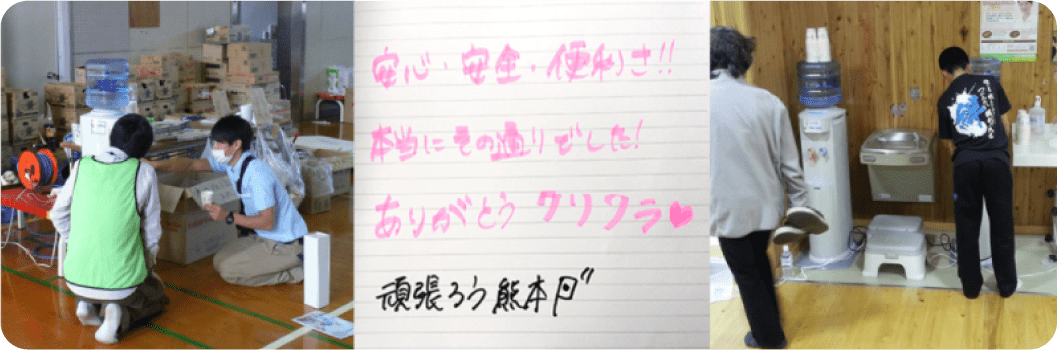 安心・安全・便利さ!!
本当にその通りでした!
ありがとう クリクラ♥
頑張ろう熊本